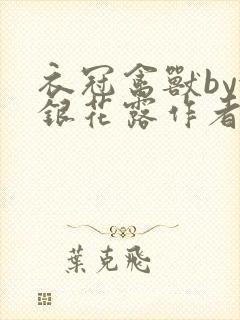 衣冠禽獸by
銀花露作者
葉克飛